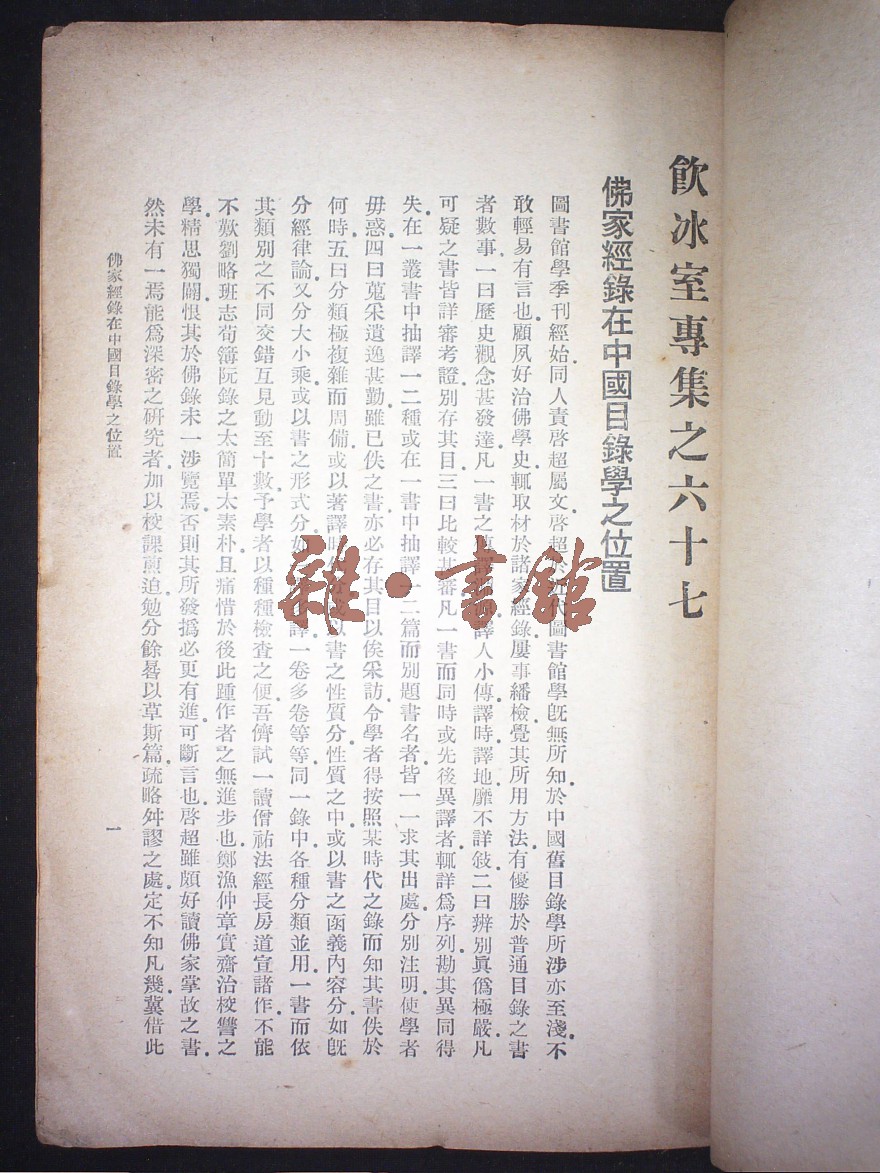 飲冰室專集之六十七
佛家經錄在中國目錄學之位置
圖書館學季刊經始。同人責啓超屬文。啓超於近代圖書館學。旣無所知。於中國舊目錄學所涉亦至淺。不
敢輕易有言也。顧夙好治佛學史。輒取材於諸家經錄。屢事繙檢。覺其所用方法。有優勝於普通目錄之書
者數事。一曰歷史觀念甚發達。凡一書之譯人小傳譯時譯地。靡不詳敍。二曰辨別眞僞極嚴。凡
可疑之書皆詳審考證。別存其目。三曰比較甚審。凡一書而同時或先後異譯者。輒詳爲序列。勘其異同得
失。在一叢書中抽譯一二種或在一書中抽譯一二篇而別題書名者。皆一一求其出處。分別注明。使學者
毋惑。四曰蒐采遺逸甚勤。雖已佚之書。亦必存其目以俟采訪。令學者得按照某時代之錄而知其書佚於
何時。五曰分類極複雜而周備。或以著譯時書之性質分。性質之中。或以書之函義內容分。如旣
分經律論。又分大小乘。或以書之形式分。如譯一卷多卷等等。同一錄中。各種分類並用。一書而依
其類別之不同。交錯互見動至十數。予學者以種種檢查之便。吾儕試一讀僧祐法經長房道宣諸作。不能
不歎劉略班志荀簿阮錄之太簡單太素朴。且痛惜於後此踵作者之無進步也。鄭漁仲章實齋治校讐之
學。精思獨闢。恨其於佛錄未一涉覽焉。否則其所發撝必更有進。可斷言也。啓超雖頗好讀佛家掌故之書。
然未有一焉能爲深密之硏究者。加以校課煎迫。勉分餘晷以草斯篇。疏略舛謬之處。定不知凡幾。冀借此
佛家經錄在中國目錄學之位置
一
雜·書館